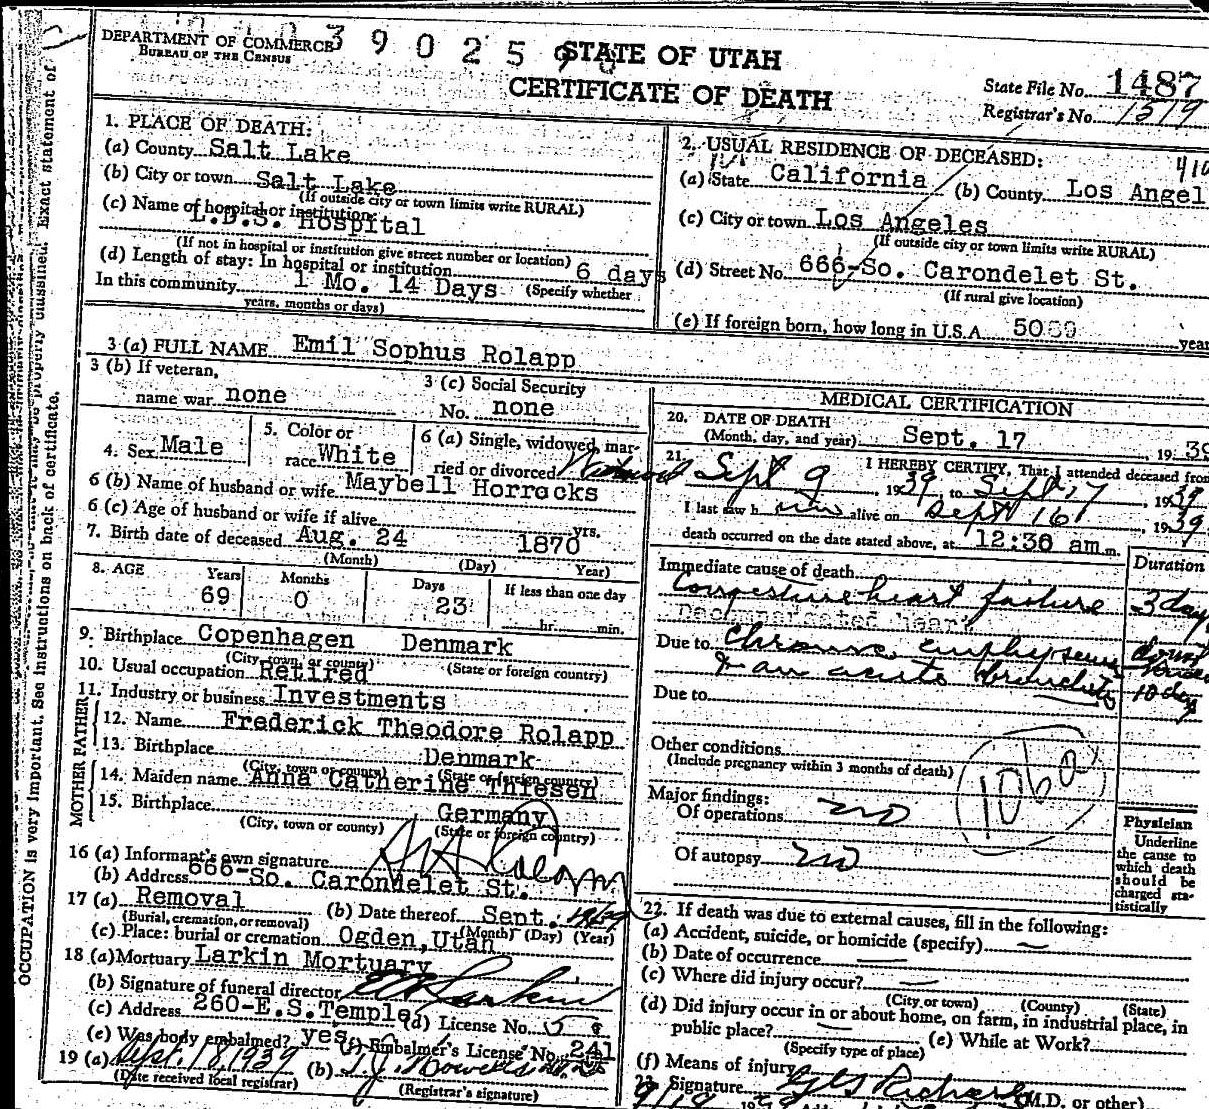 DEPARTMENT OF COMMERCE
BUREAU OF THE CENSUS
39025
STATE OF UTAH
CERTIFICATE OF DEATH
State File No. 1487
Registrar's No. 1519
OCCUPATION is very important. See instructions on back of certificate.
properly classified. Exact statement of
1. PLACE OF DEATH:
(a) County Salt Lake
(b) City or town Salt Lake
(If outside city or town limits write RURAL)
(c) Name of hospital or institution:
L.D.S. Hospital
(If not in hospital or institution give street number or location)
(d) Length of stay: In hospital or institution 6 days
In this community 1 Mo. 14 Days (Specify whether
years, months or days)
2. USUAL RESIDENCE OF DECEASED:
(a) State California (b) County Los Angel
(c) City or town Los Angeles
(If outside city or town limits write RURAL)
(d) Street No. 666-So. Carondelet St.
(If rural give location)
(e) If foreign born, how long in U.S.A. 50 year
3 (a) FULL NAME Emil Sophus Rolapp
3 (b) If veteran,
name war none
3 (c) Social Security
No. none
4. Sex Male
5. Color or
race White
6 (a) Single, widowed, mar-
ried or divorced Widowed
6 (b) Name of husband or wife Maybell Horrocks
6 (c) Age of husband or wife if alive yrs.
7. Birth date of deceased Aug. 24 1870
(Month) (Day) Year)
8. AGE Years Months Days If less than one day
69 0 23 hr. min.
9. Birthplace Copenhagen Denmark
(City, town, or county) (State or foreign country)
10. Usual occupation Retired
11. Industry or business Investments
FATHER
12. Name Frederick Theodore Rolapp
13. Birthplace Denmark
(City, town or county) (State or foreign country)
MOTHER
14. Maiden name Anna Catherine Thiesen
15. Birthplace Germany
(City, town or county) (State or foreign country)
16 (a) Informant's own signature
(b) Address 666-So. Carondelet St.
17 (a) Removal (b) Date thereof Sept.
(Burial, cremation, or removal) (Month) (Day) (Year)
(c) Place: burial or cremation Ogden, Utah
18 (a) Mortuary Larkin Mortuary
(b) Signature of funeral director Larkin
(c) Address 260-E.S.Temple (d) License No. 5
(e) Was body embalmed? yes (f) Embalmer's License No. 241
19 (a) Sept. 18, 1939 (b)
(Date received local registrar) (Registrar's signature)
MEDICAL CERTIFICATION
20. DATE OF DEATH
(Month, day, and year) Sept. 17 19 39
21. I HEREBY CERTIFY, That I attended deceased from
Sept 9, 1939, to Sept 17, 1939
I last saw him alive on Sept 16, 1939
death occurred on the date stated above, at 12:30 am m.
Duration
Immediate cause of death
Congestive heart failure 3 days
Decompensated heart
Due to chronic emphysema
& an acute bronchitis 10 days
Due to
Other conditions
(Include pregnancy within 3 months of death)
106a
Major findings:
Of operations no
Of autopsy no
Physician
Underline
the cause to
which death
should be
charged sta-
tistically
22. If death was due to external causes, fill in the following:
(a) Accident, suicide, or homicide (specify)
(b) Date of occurrence
(c) Where did injury occur?
(City or town) (County) (State)
(d) Did injury occur in or about home, on farm, in industrial place, in
public place? (e) While at Work?
(Specify type of place)
(f) Means of injury
23. Signature G S Richards (M.D. or other)